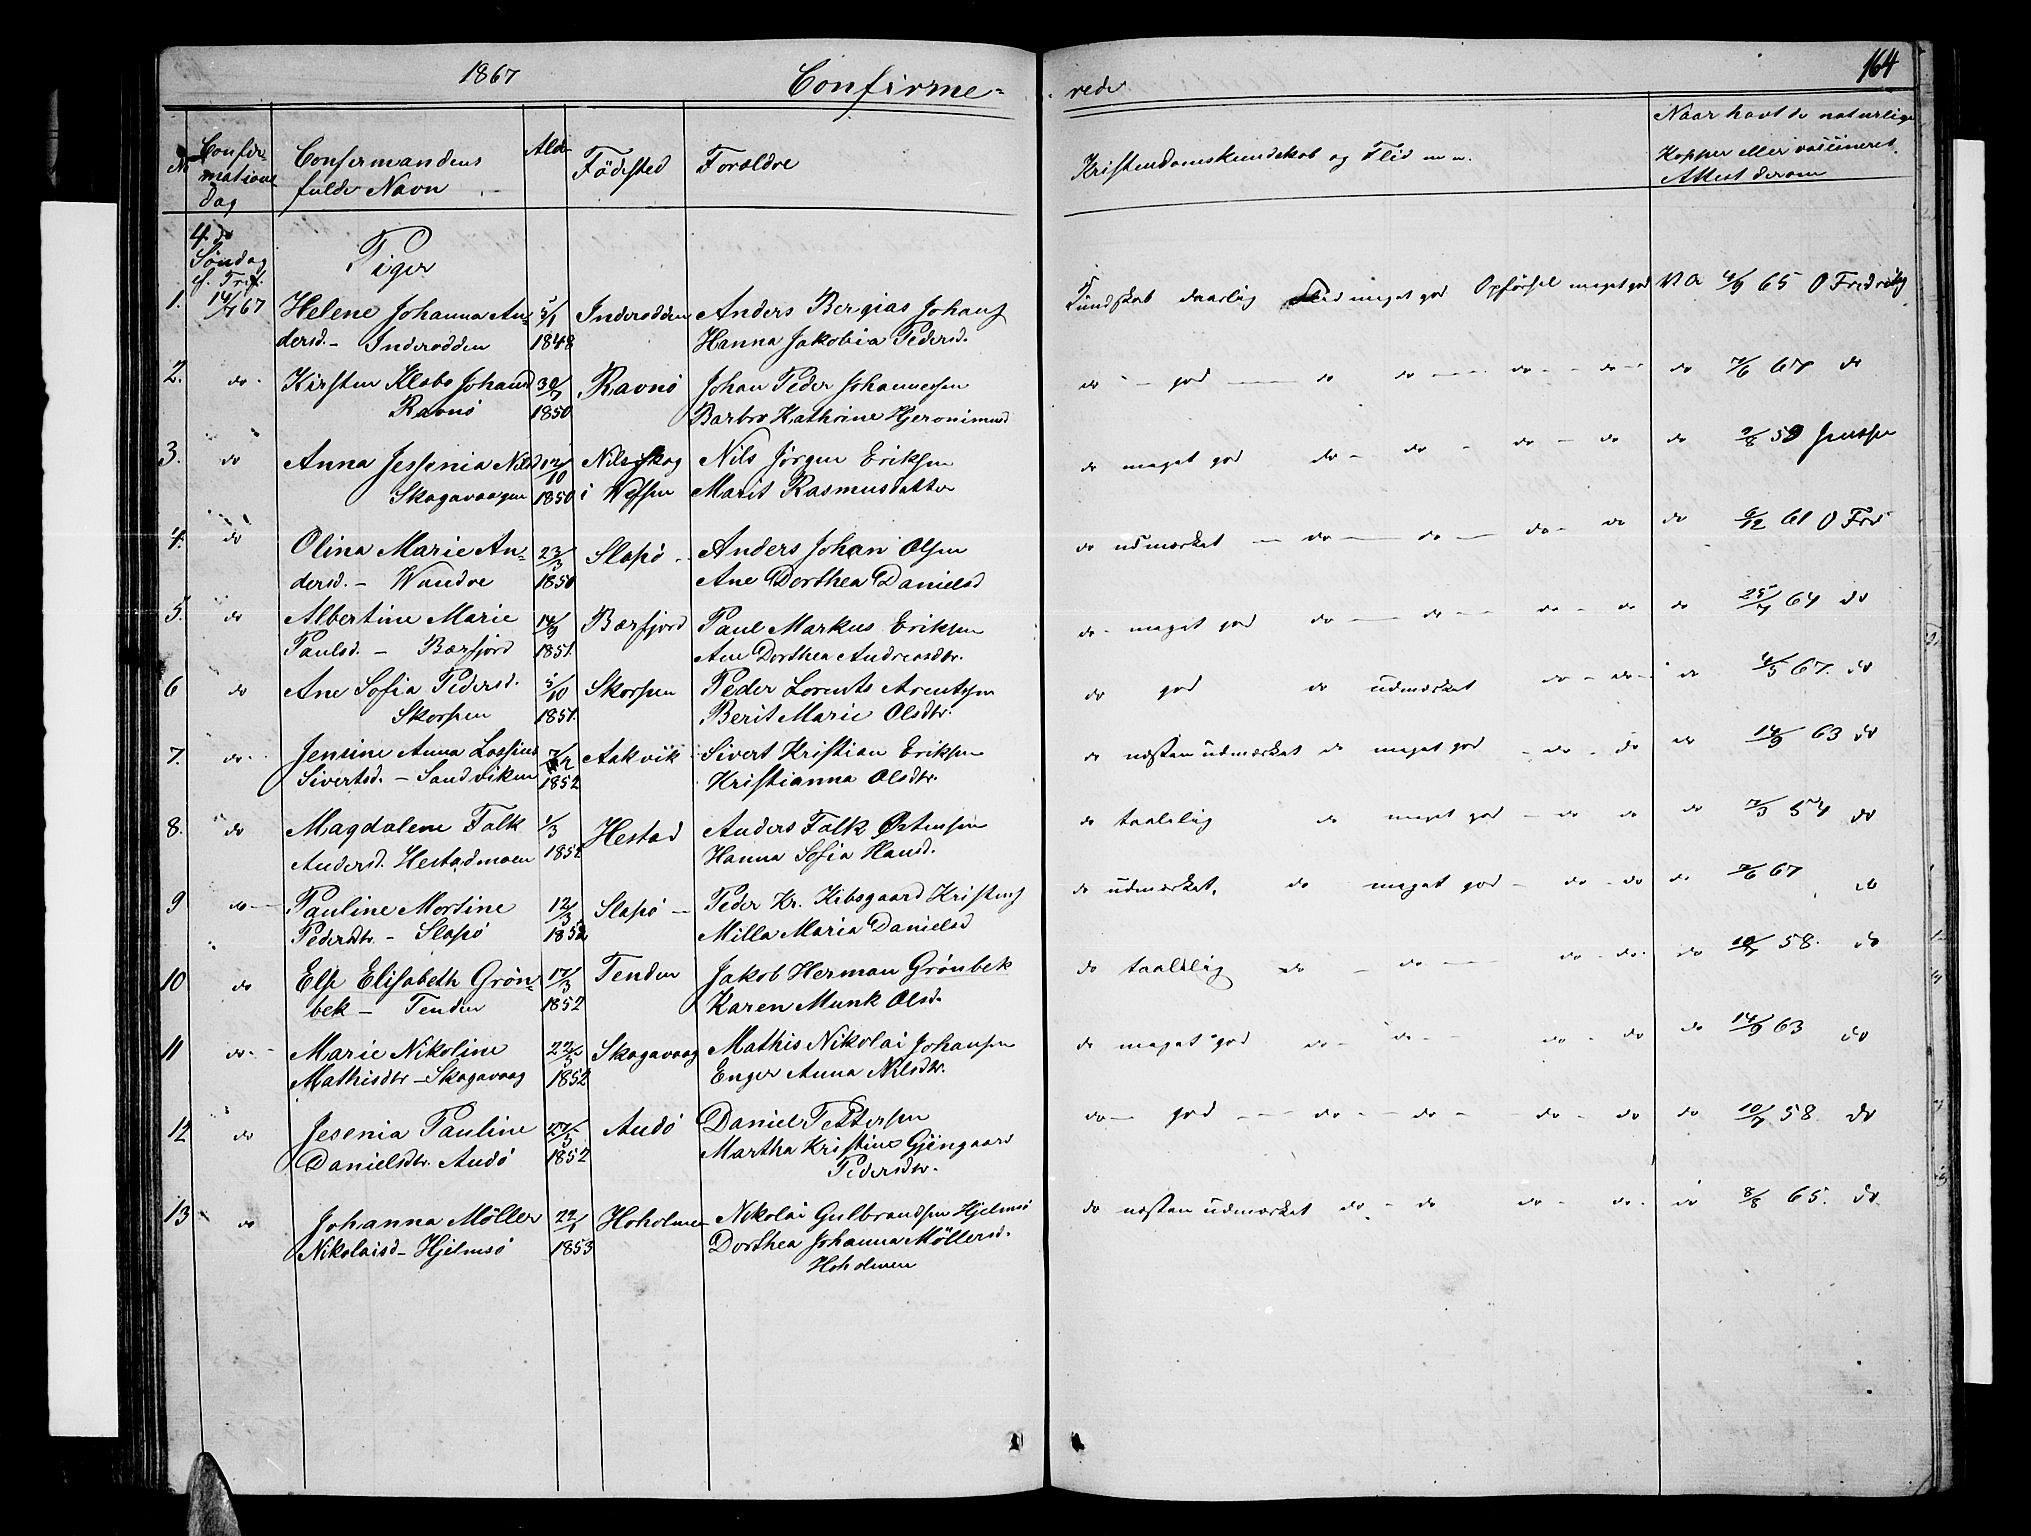 1867
Confirme-
rede
164
No
Confir-
mations
dag
Confirmandens
fulde Navn
Alder
Födested
Forældre
Kristendomskundskab og Flid m. m.
Naar havt de naturlige
Kopper eller vaccineret.
Attest derom
4de
Söndag
e. Tref.
Piger
1. 14/7 67 Helene Johanna An- 5/1 Inderodden Anders Bergias Johans Kundskab daarlig Flid meget god Opførsel meget god VA 4/9 65 O Fredrikg
dersd. - Inderodden 1848 Hanna Jakobia Pedersd.
2. do. Kirsten Klæbo Johansd 30/7 Ravnö Johan Peder Johannessen do - god - do do - do - do - do 7/6 67 do
Ravnö 1850 Barbro Kathrine Hjeronimusd
3. do Anna Jessenia Nilsd 12/10 Nilsskog Nils Jörgen Eriksen do meget god do - do - do - do do 2/8 59 Jenssen
Skagavaagen 1850 i Vefsen Marit Rasmusdatter
4. do Olina Marie An- 23/3 Slapö Anders Johan Olsen do udmærket - do - do - do - do do 6/12 61 O Frd
dersd. - Wandve 1850 Ane Dorthea Danielsd
5. do Albertine Marie 14/9 Bærfjord Paul Markus Eriksen do - meget god do - do - do - do do 25/7 64 do
Paulsd. - Bærfjord 1851. Ane Dorthea Andreasdtr.
6 do Ane Sofia Pedersd. 5/10 Skorpen Peder Lorents Arentsen do god do udmærket do - do - do 4/5 67. do
Skorpen 1851. Berit Marie Olsdtr.
7. do. Jensine Anna Lossius 7/2 Aakvik Sivert Kristian Eriksen do næsten udmærket do meget god - do - do do 14/9 63 do
Sivertsd. - Sandviken 1852 Kristianna Olsdtr.
8. do Magdalene Falk 1/3 Hestad Anders Falk Østensen do taalelig do meget god - do do do 7/3 54 do
Andersd. Hestadmoen 1852 Hanna Sofia Hansd.
9 do Pauline Mortine 12/3 Slapö - Peder Kr. Kibsgaard Kristens do udmærket. do meget god - do - do do 7/6 67 do
Pedersdtr. - Slapö 1852 Milla Maria Danielsd
10 do Else Elisabeth Grön- 17/3 Tenden Jakob Herman Grönbek do taalelig do - do - do - do. do 10/7 58. do
bek - Tenden 1852 Karen Munk Olsd.
11 do. Marie Nikoline 22/5 Skagavaag Mathis Nikolai Johansen do meget god do - do - do - do do 14/9 63 do
Mathisdtr - Skagavaag 1852 Enger Anna Nilsdtr.
12 do Jesenia Pauline 27/5 Andö Daniel Pettersen do - god - do - do - do - do do 10/7 58. do
Danielsdtr. Andö 1852 Martha Kristine Gjengaard
Pedersdtr.
13 do Johanna Möller 22/1 Hoholmen Nikolai Gulbrandsen Hjelmsö do næsten udmærket do - do do - do. do 8/8 65. do.
Nikolaisd - Hjelmsö 1853 Dorthea Johanna Möllersd.
Hoholmen